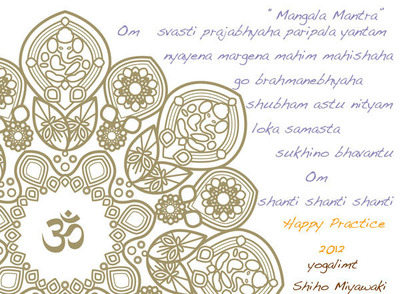 "Mangala Mantra"
Om svasti prajabhyaha paripala yantam
nyayena margena mahim mahishaha
go brahmanebhyaha
shubham astu nityam
loka samasta
sukhino bhavantu
Om
shanti shanti shanti
Happy Practice
2012
yogalimt
ॐ
Shiho Miyawaki